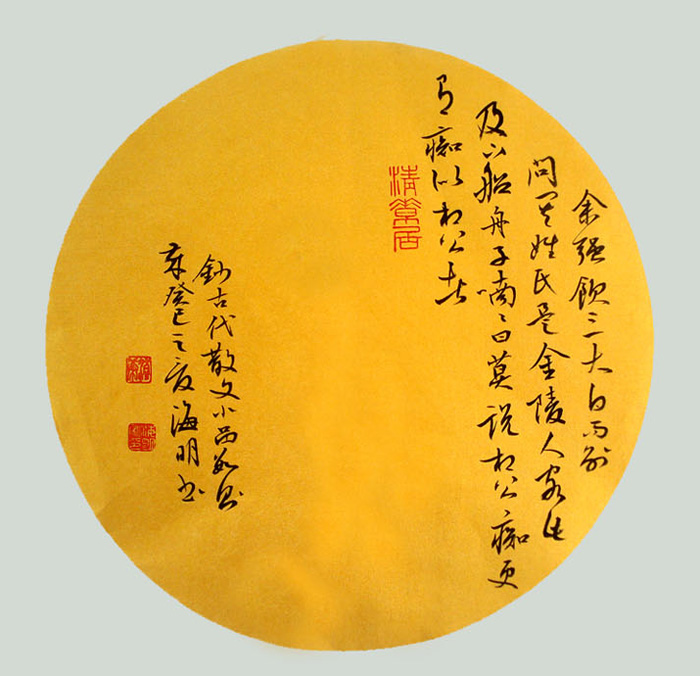 余强飲三大白而别
问其姓氏是金陵人客此
及下船舟子喃〻曰莫说相公痴更
有痴似相公者
鈔古代散文小品数则
癸巳之夏海明书